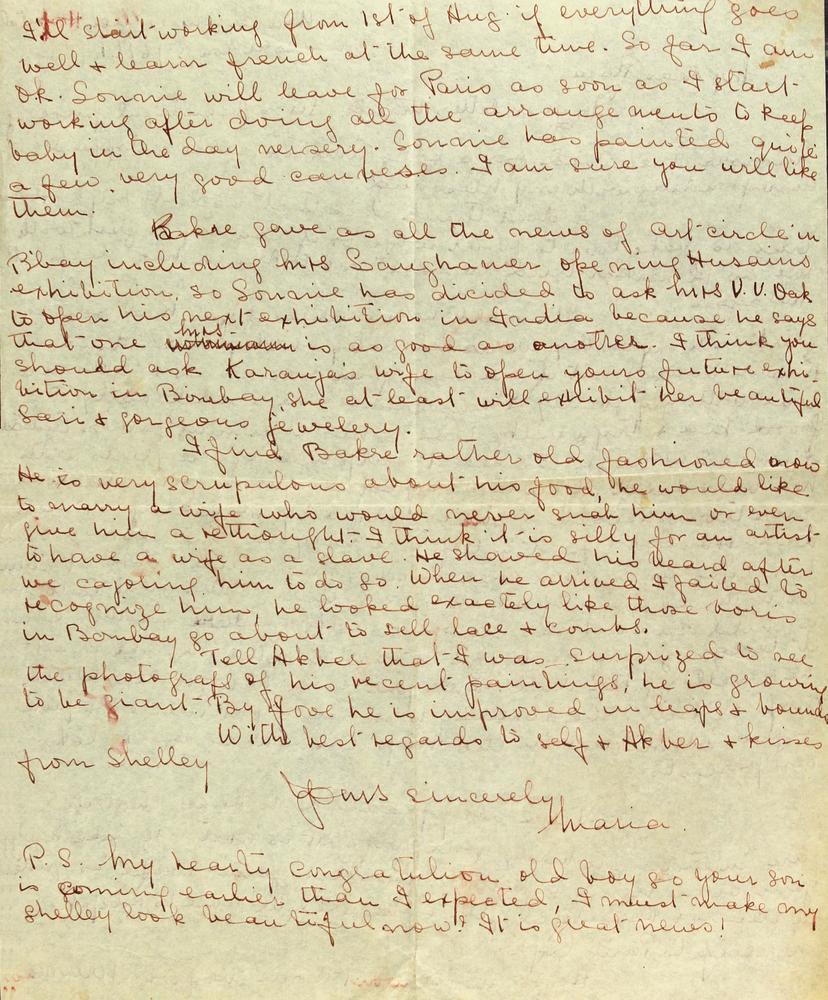 I'll start working from 1st of Aug. if everything goes
well & learn french at the same time. So far I am
Ok. Sonnie will leave for Paris as soon as I start
working after doing all the arrangements to keep
baby in the day nersery. Sonnie has painted quite
a few very good canveses. I am sure you will like
them.
Bakre gave as all the news of art circle in
B'bay including Mrs opening Husains
exhibition. So Sonnie has dicided to ask Mrs V.V. Oak
to open his next exhibition in India because he says
that one Mrs. is as good as another. I think you
should ask Karanja's wife to open yours future exhi-
bition in Bombay, she at least will exhibit her beautiful
Sari & gorgeous jewelery.
I find Bakre rather old fashioned now
He is very scrupulous about his food, he would like
to marry a wife who would never snub him or even
give him a rethought. I think it is silly for an artist
to have a wife as a slave. He shaved his beard after
we cajoling him to do so. When he arrived I failed to
recognize him, he looked exactely like those boris
in Bombay go about to sell lace & combs.
Tell Akber that I was surprized to see
the photografs of his recent paintings, he is growing
to be giant. By Jove he is improved in leaps & bounds
With best regards to self & Akber & kisses
from Shelley
Yours sincerely
Maria.
P.S. My hearty congratulion old boy so your son
is coming earlier than I expected, I must make my
shelley look beautiful now! It is great news!